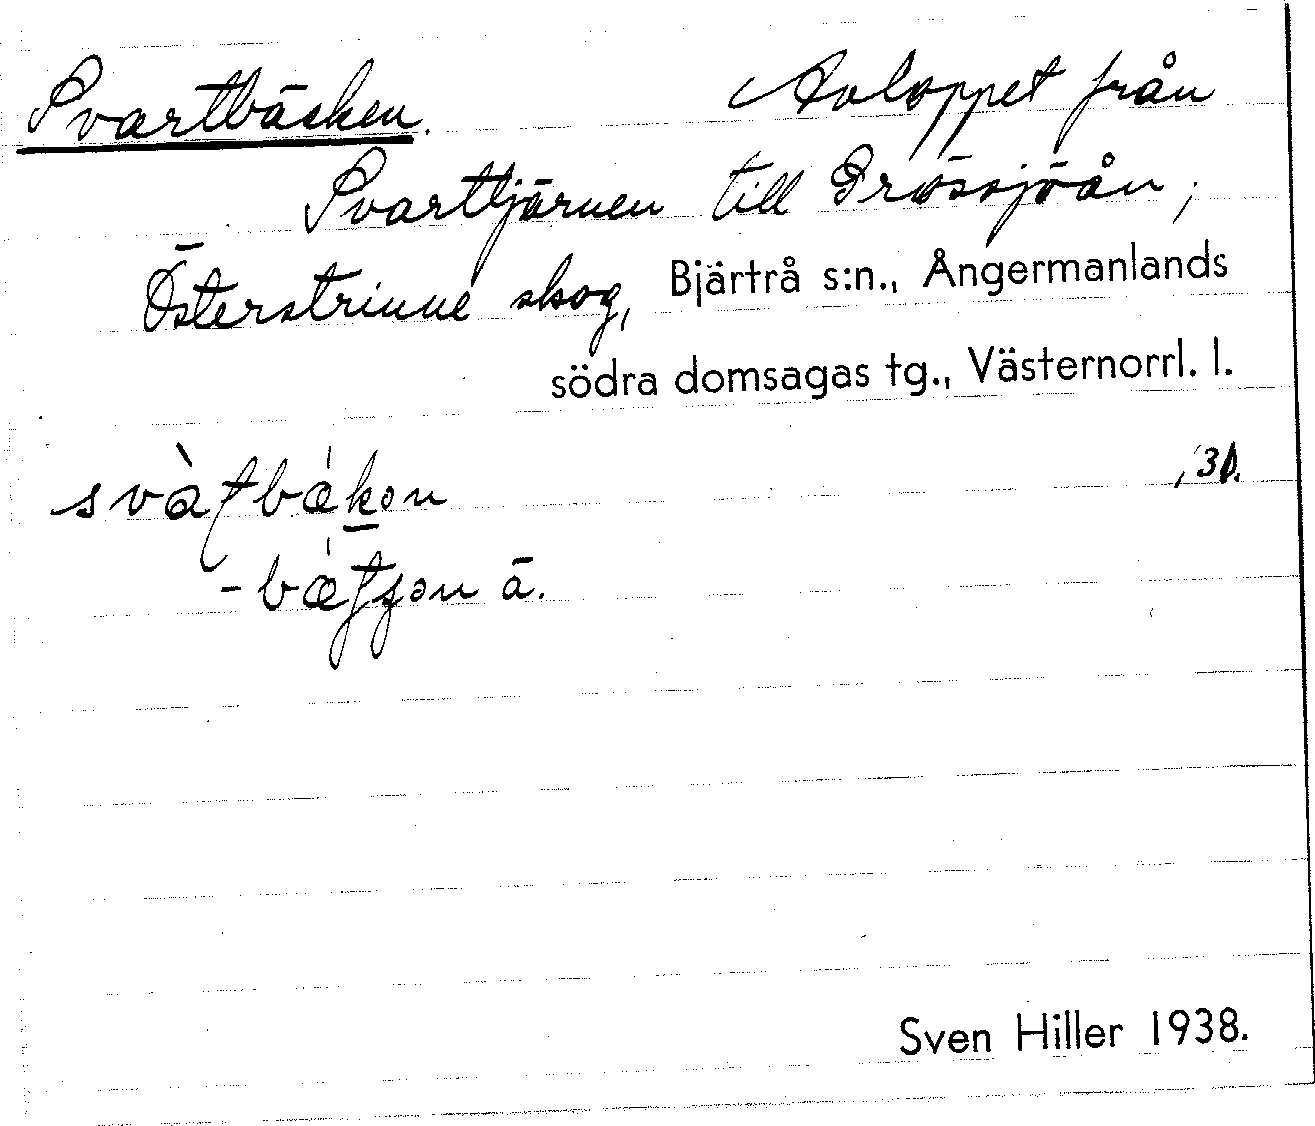 Svartbäcken. Avloppet från
Svarttjärnen till Grössjöån,
Österstrinne skog, Bjärtrå s:n., Ångermanlands
södra domsagas tg., Västernorrl. l.
ä.
Sven Hiller 1938.